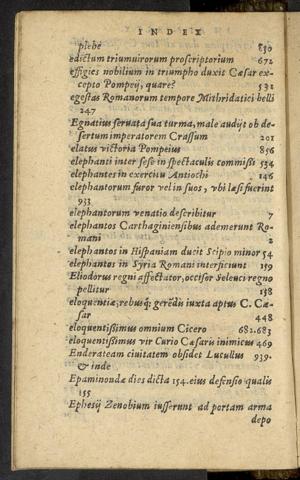 INDEX
plebé 850
edictum triumuirorum proscriptorium 672
effigies nobilium in triumpho duxit Cæsar ex-
cepto Pompeij, quare? 532
egestas Romanorum tempore Mithridatici belli
247
Egnatius seruata sua turma, male audijt ob de-
sertum imperatorem Crassum 201
elatus victoria Pompeius 856
elephanti inter sese in spectaculis commissi 534
elephantes in exercitu Antiochi 146
elephantorum furor vel in suos, vbi læsi fuerint
933
elephantorum venatio describitur 7
elephantos Carthaginiensibus ademerunt Ro-
mani 2
elephantos in Hispaniam ducit Scipio minor 54
elephantos in Syria Romani interficiunt 159
Eliodorus regni affectator, occisor Seleuci regno
pellitur 158
eloquentiæ, rebusq; gerẽdis iuxta aptus C. Cæ-
sar 448
eloquentissimus omnium Cicero 682.683
eloquentissimus vir Curio Cæsaris inimicus 469
Enderateam ciuitatem obsidet Lucullus 939.
& inde
Epaminondæ dies dicta 154. eius defensio qualis
155
Ephesij Zenobium iusserunt ad portam arma
depo